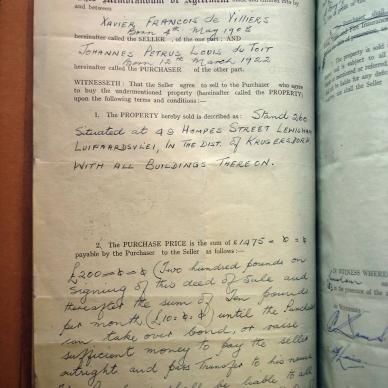 Memorandum of Agreement
and between
Xavier Francois de Villiers
Born 4th May 1908
hereinafter called the SELLER, of the one part: AND
Johannes Petrus Louis du Toit
Born 12th March 1922
hereinafter called the PURCHASER of the other part.
WITNESSETH: That the Seller agree to sell to the Purchaser who agree
to buy the undermentioned property (hereinafter called the PROPERTY)
upon the following terms and conditions:—
1. The PROPERTY hereby sold is described as: Stand 260
Situated at 49 Hompes Street Lewisham
Luipaardsvlei, in the Dist. of Krugersdorp
with all Buildings thereon.
2. The PURCHASE PRICE is the sum of £1475 = 0 = 0
payable by the Purchaser to the Seller as follows:—
£200=0=0 (Two hundred pounds on
signing of this deed of sale and
thereafter the sum of ten pounds
per month (£10:0:0) until the Purchaser
can take over bond, or raise
sufficient money to pay the seller
outright and pass transfer to his name
shall be liable to all
The property is sold
IN WITNESS WHEREOF
in the presence of the